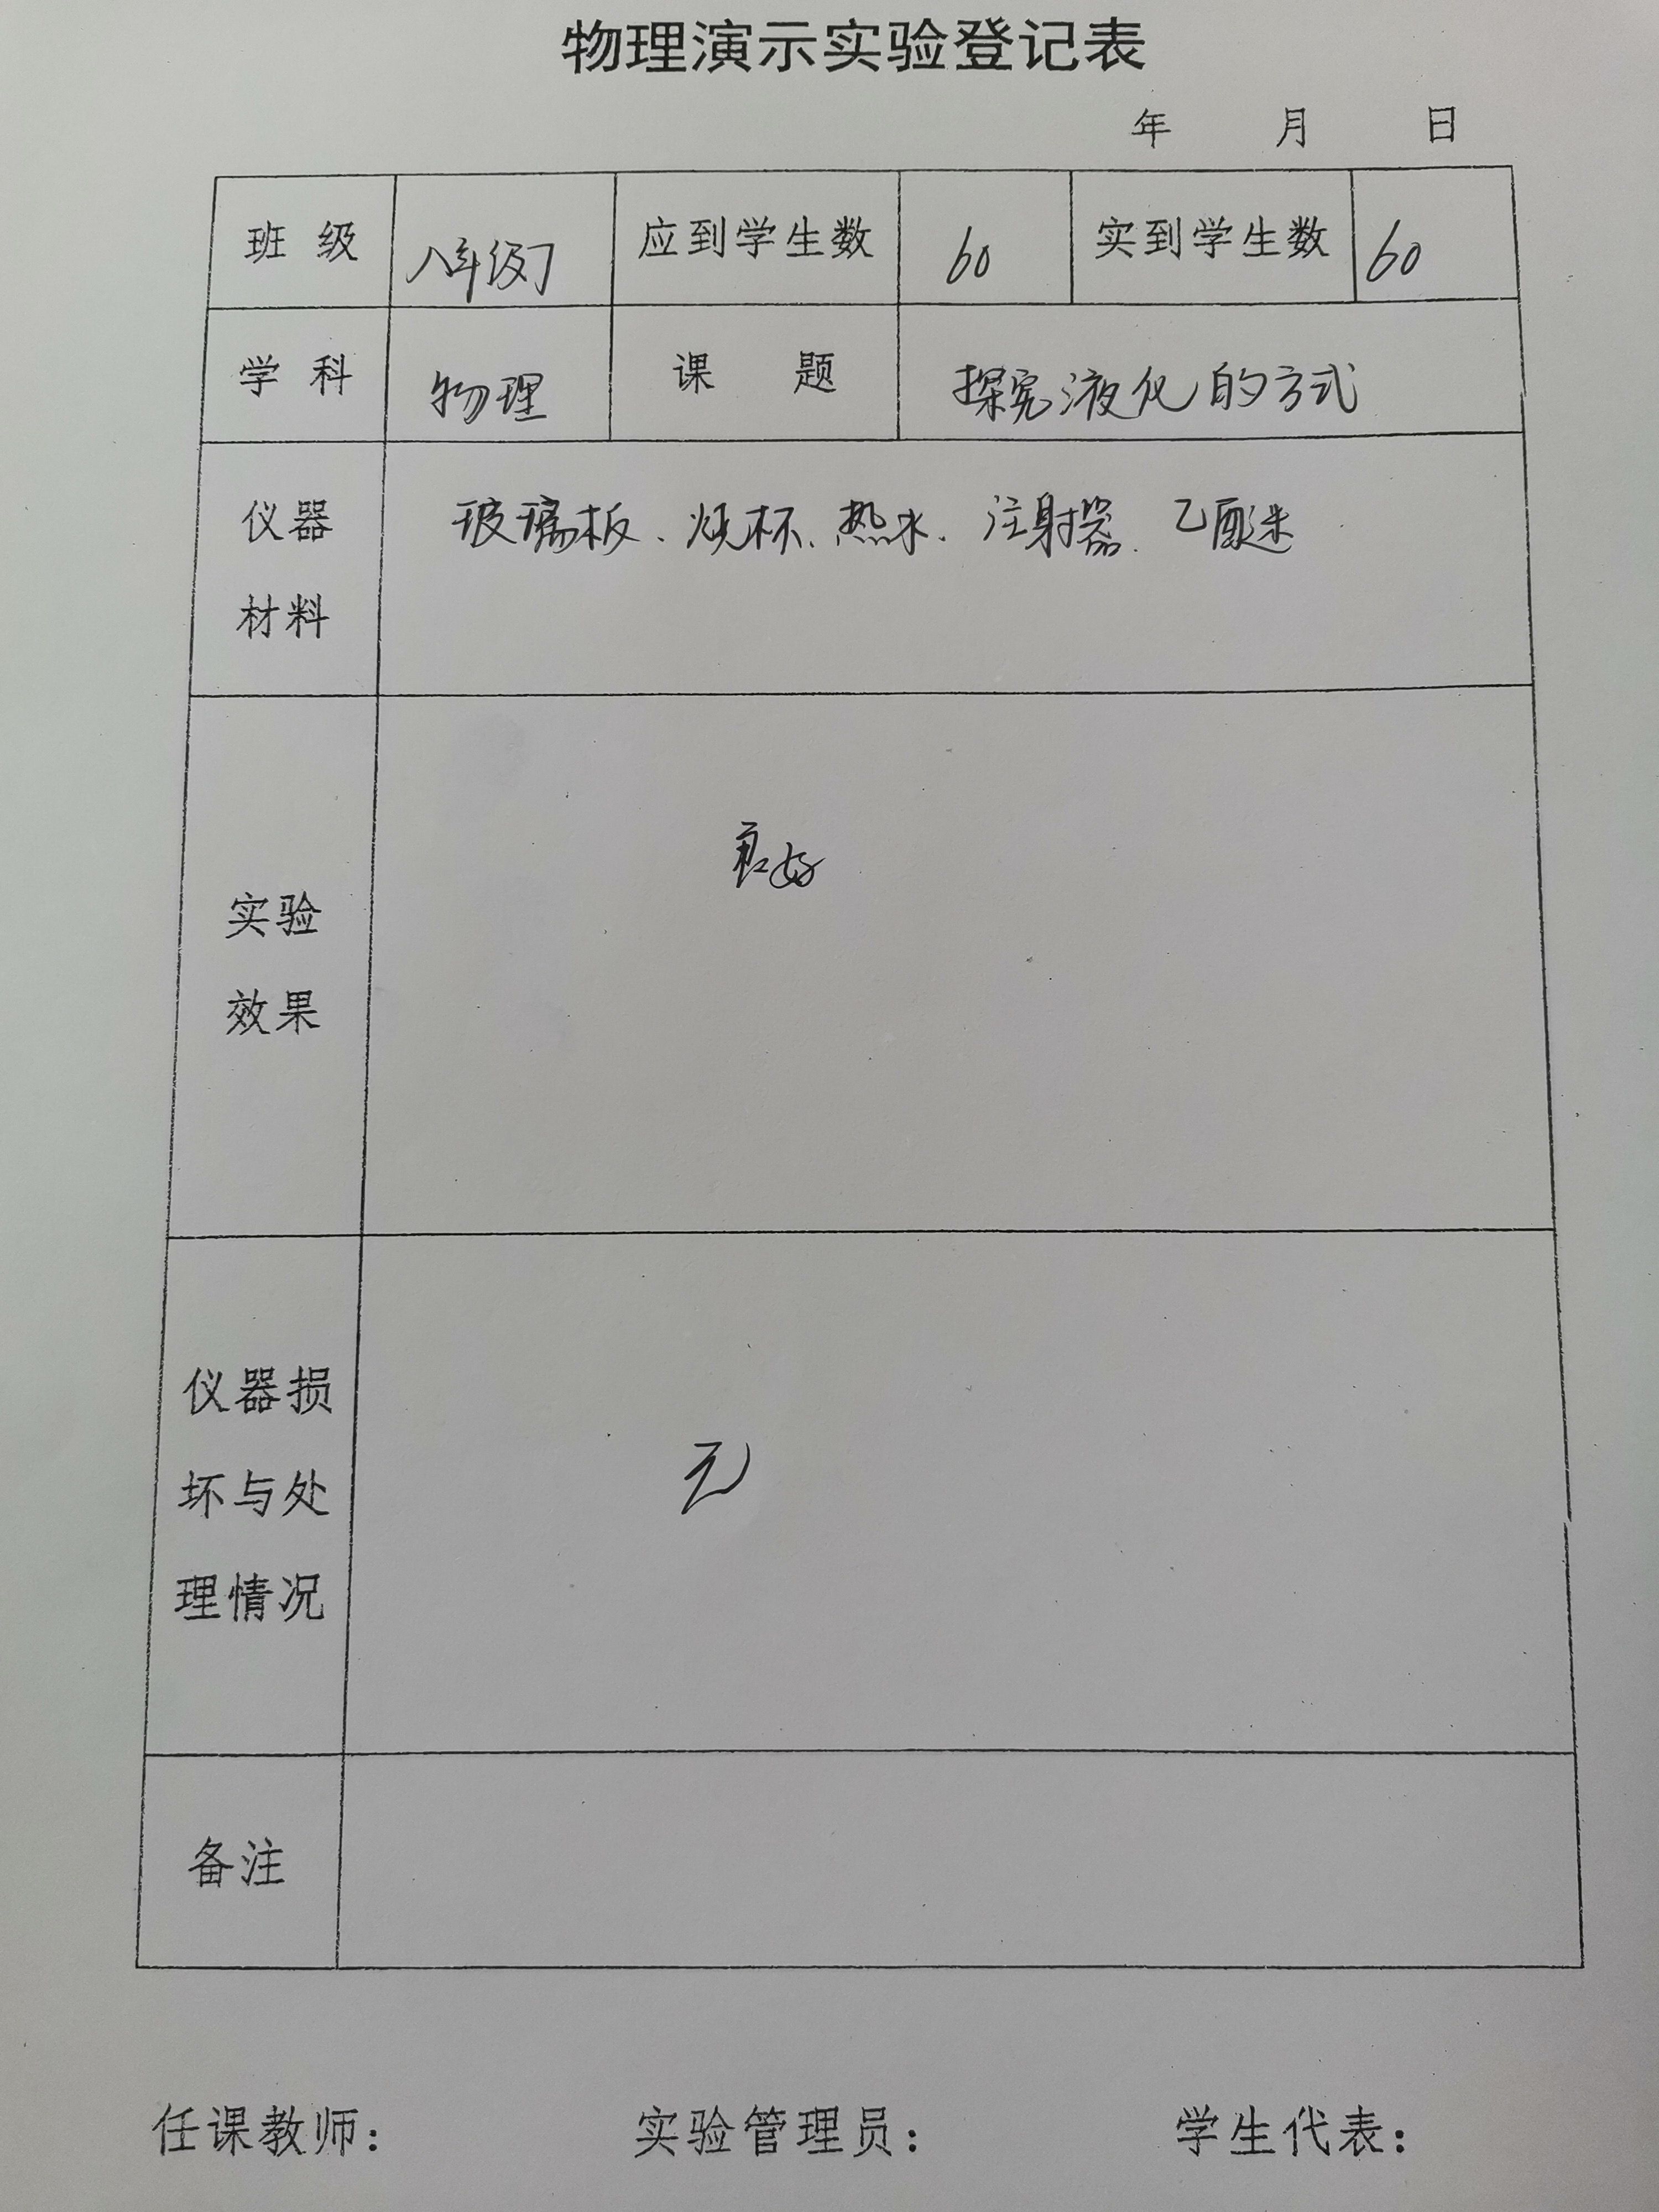 物理演示实验登记表
年 月 日
班 级 八年级 应到学生数 60 实到学生数 60
学 科 物理 课 题 探究液化的方式
仪器
材料
玻璃板、烧杯、热水、注射器、乙醚
实验
效果
良好
仪器损
坏与处
理情况
无
备注
任课教师: 实验管理员: 学生代表: